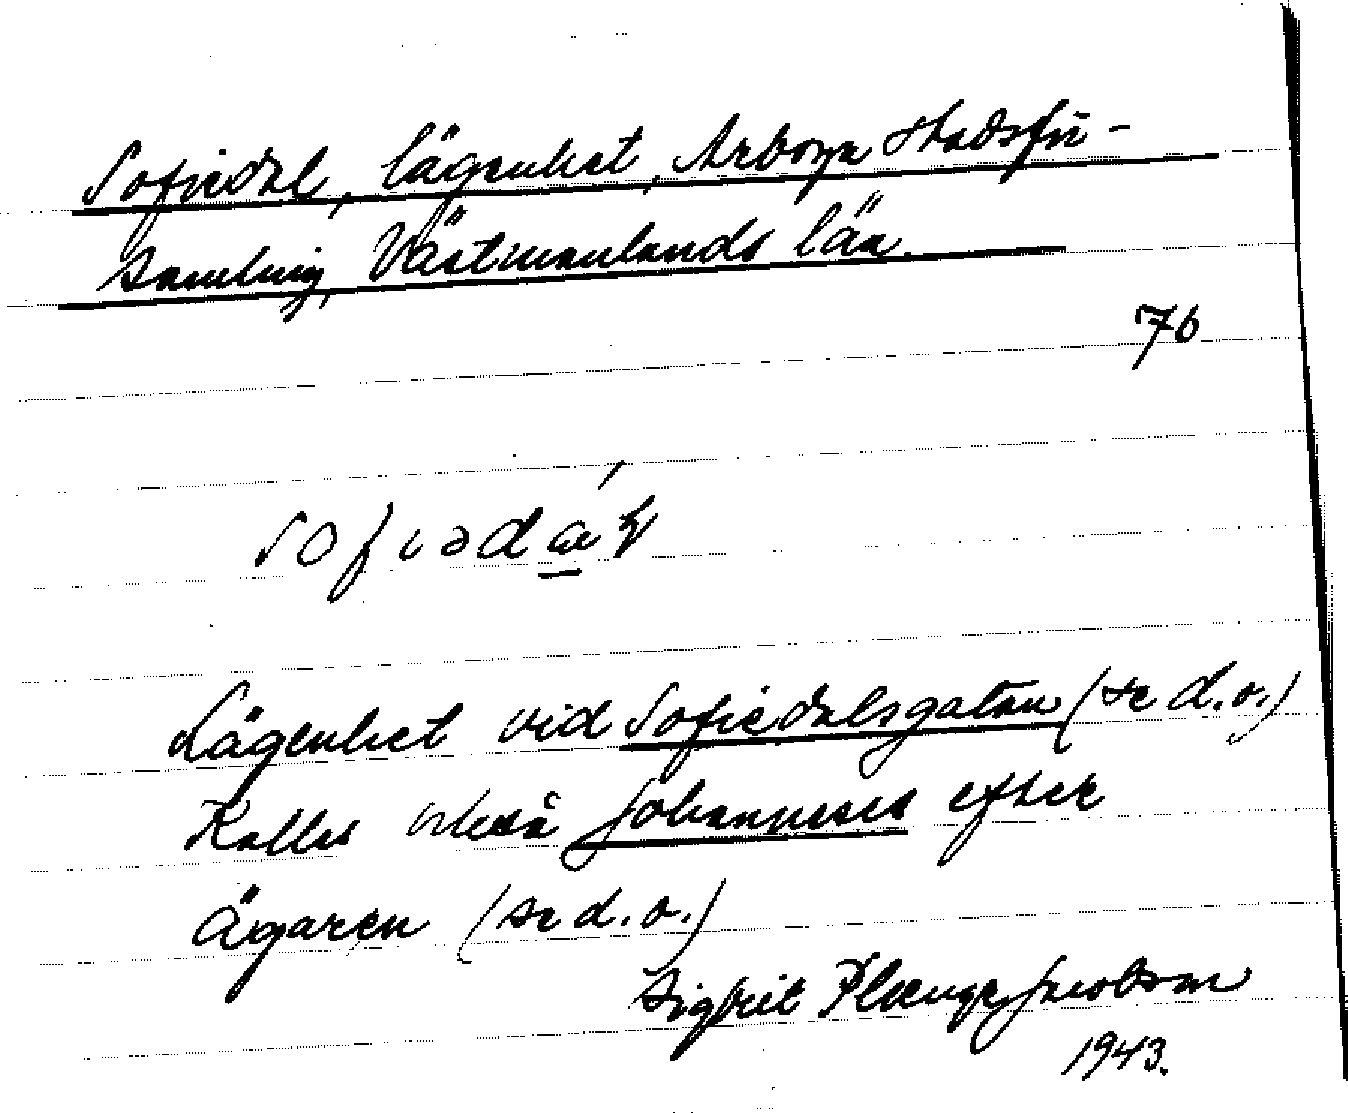 Sofiedal, lägenhet, Arboga stadsför-
samling, Västmanlands län.
76
Sofiedal, lägenhet vid Sofiedalsgatan (se d.o.)
Kallas också Johanneses efter
ägaren (se d.o.)
Sigfrit Plænge Jacobson
1943.